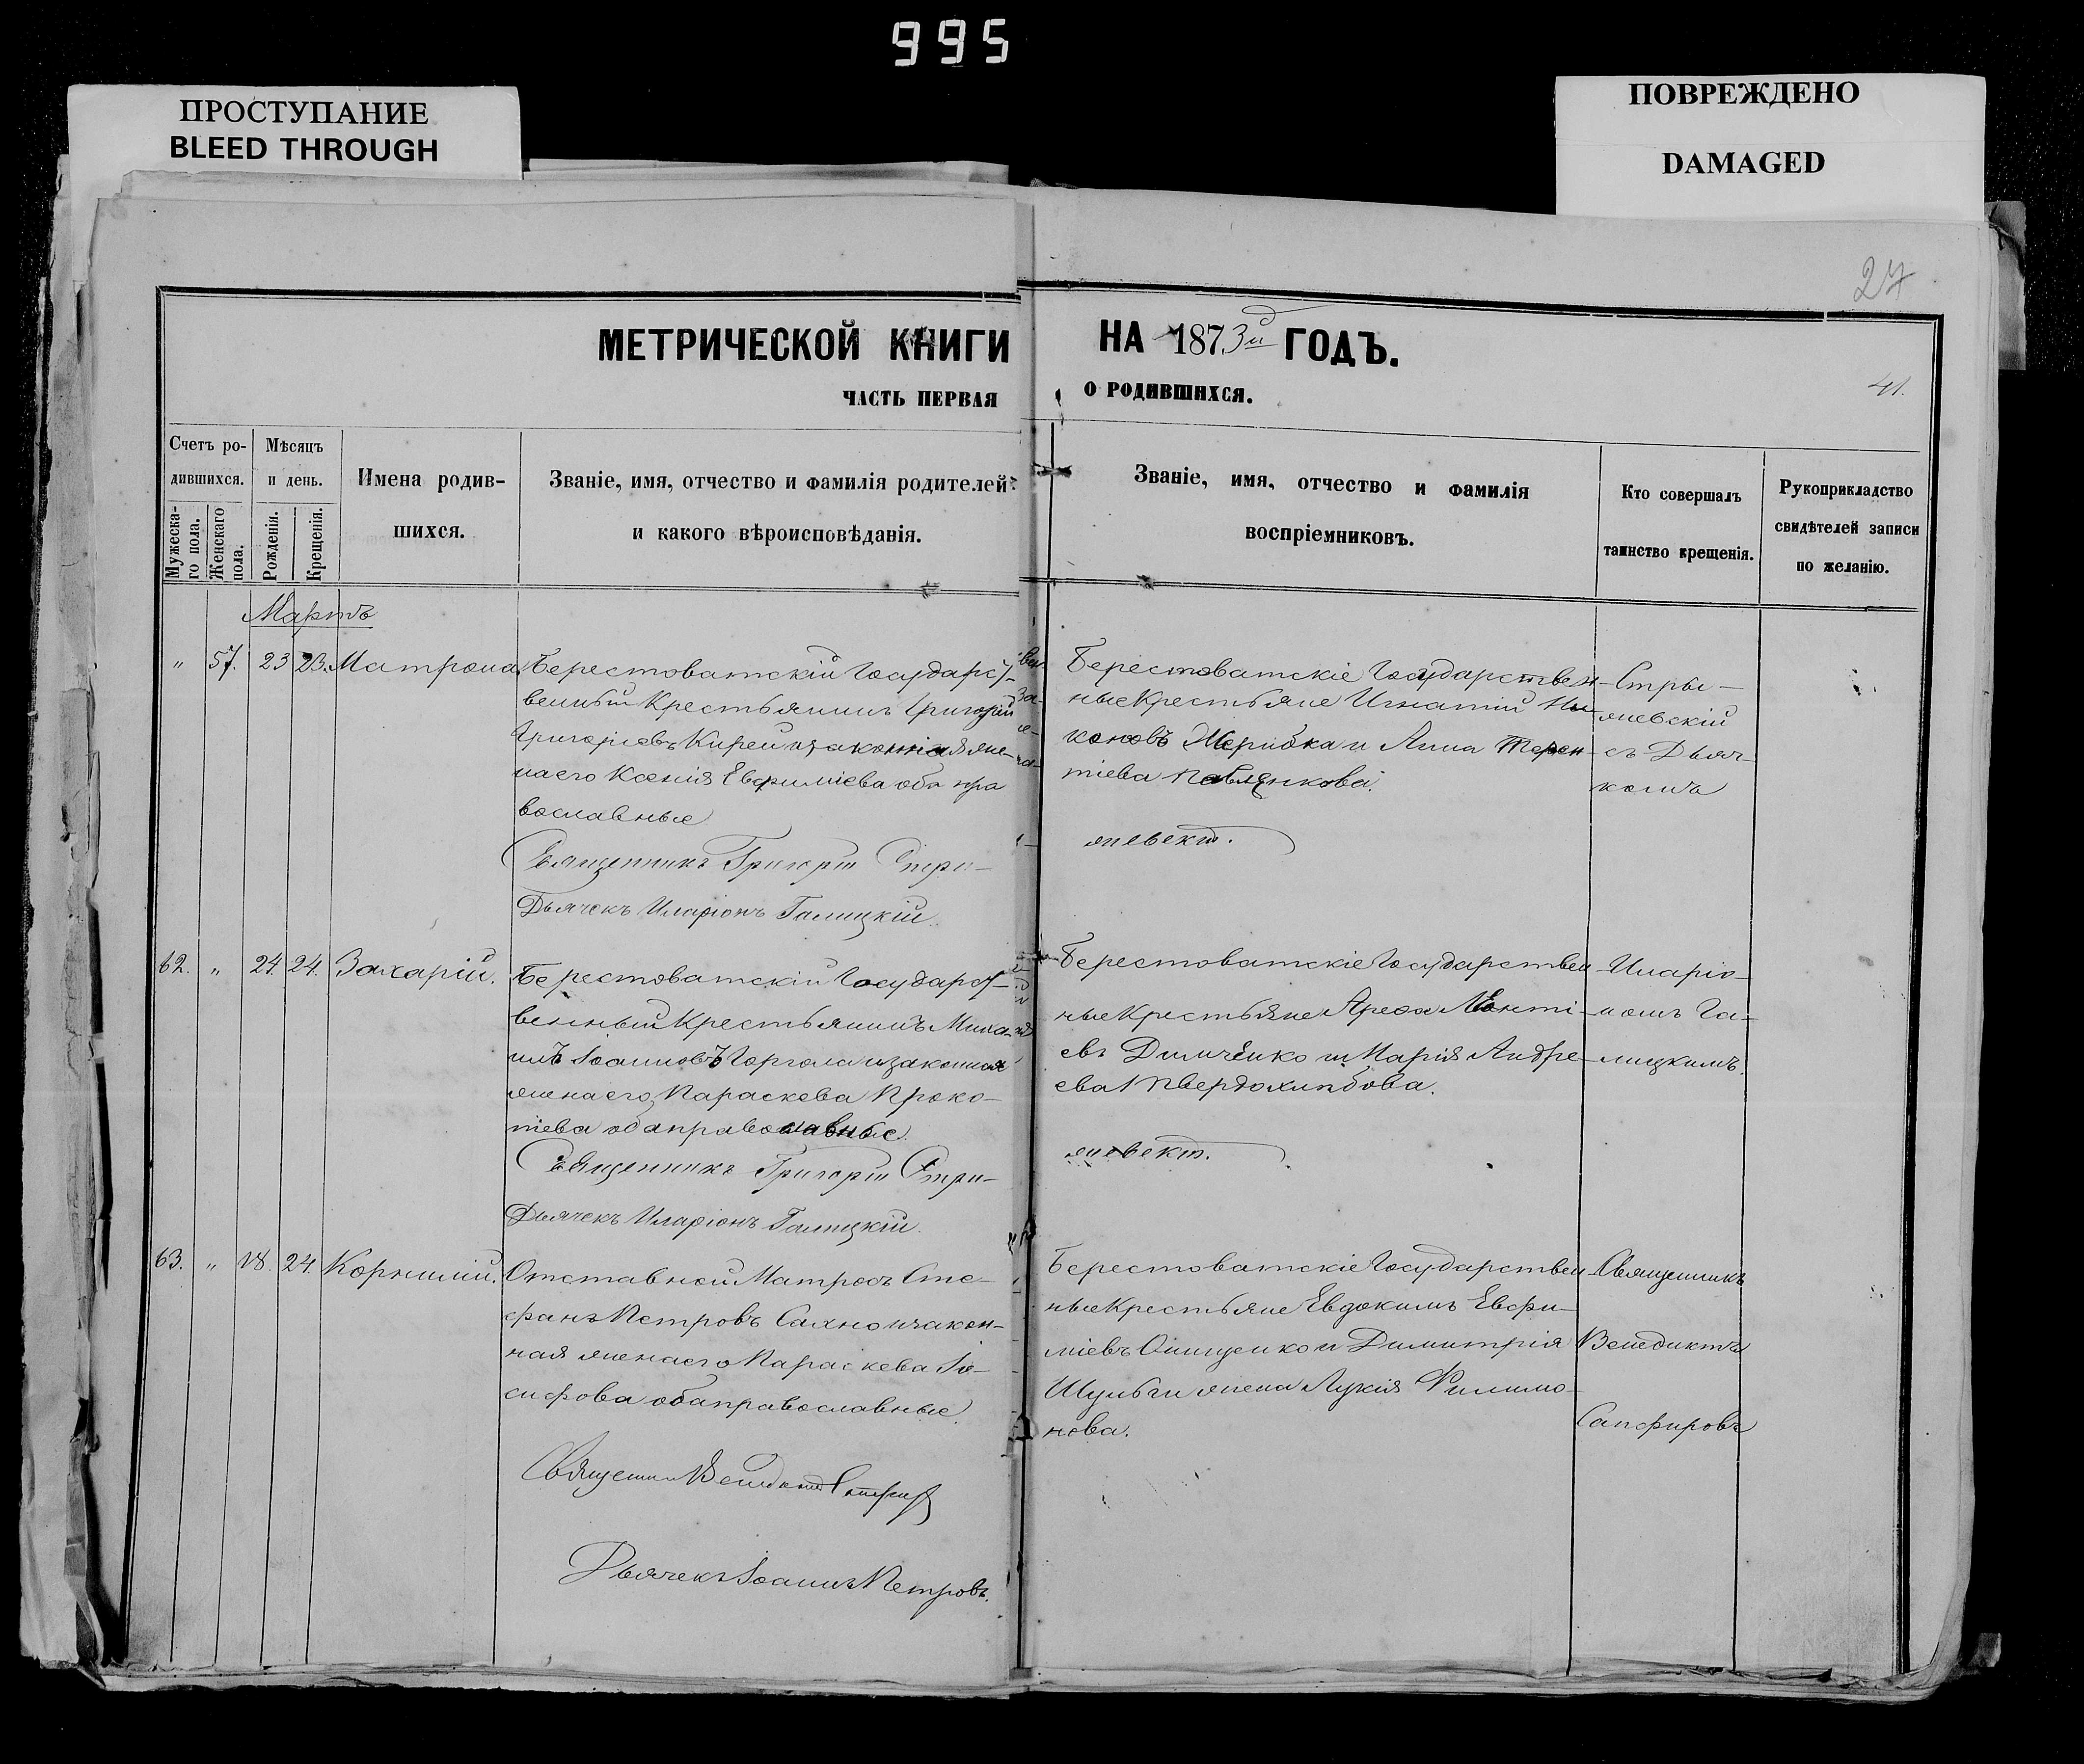 995
ПРОСТУПАНИЕ
BLEED THROUGH
ПОВРЕЖДЕНО
DAMAGED
27
МЕТРИЧЕСКОЙ КНИГИ НА 1873й ГОДЪ.
ЧАСТЬ ПЕРВАЯ О РОДИВШИХСЯ.
41.
Счетъ ро-
дившихся.
Мужеска-
го пола.
Женскаго
пола.
Мѣсяцъ
и день.
Рожденія.
Крещенія.
Имена родив-
шихся.
Званіе, имя, отчество и фамилія родителей
и какого вѣроисповѣданія.
Званіе, имя, отчество и фамилія
воспріемниковъ.
Кто совершалъ
таинство крещенія.
Рукоприкладство
свидѣтелей записи
по желанію.
Мартъ
" 57. 23 23. Матрона
Берестоватскій Государст-
венный Крестьянинъ Григорій
Григорьевъ Кирей и законная же-
на его Ксенія Евфиміева оба пра
вославные
Священникъ Григорій Стри-
жевскій.
Дьячекъ Иларіонъ Галицкій.
Берестоватскіе Государствен-
ные Крестьяне Игнатій Ни
коновъ Жерибка и Анна Терен-
тіева Павленкова.
Стри-
жевскій
съ Дьяч-
комъ
62. " 24. 24. Захарій.
Берестоватскій Государст-
венный Крестьянинъ Миха-
илъ Іоанновъ Горгола и законная
жена его Параскева Проко-
піева оба православные.
Священникъ Григорій Стри-
жевскій.
Дьячекъ Иларіонъ Галицкій.
Берестоватскіе Государствен
ные Крестьяне Ареѳа Леонті-
евъ Димченко и Марія Андре-
ева Твердохлѣбова.
Иларіо-
номъ Га-
лицкимъ.
63. " 18. 24. Корнилій.
Отставной Матросъ Сте-
фанъ Петровъ Сахно и закон-
ная жена его Параскева Іо-
сифова оба православные.
Священникъ Венедиктъ Сапфировъ
Дьячекъ Іоаннъ Петровъ.
Берестоватскіе Государствен
ные Крестьяне Евдокимъ Евфи-
міевъ Онищенко и Димитрія
Шульги жена Лукія Филимо-
нова.
Священникъ
Венедиктъ
Сапфировъ